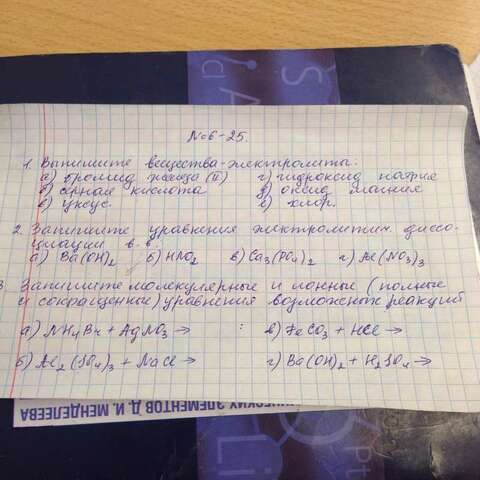 №6-25.
1. Выпишите вещества-электролиты:
а) бромид железа (II) г) гидроксид натрия
б) серная кислота д) оксид магния
в) уксус е) хлор.
2. Запишите уравнения электролитич. диссо-
циации в-в.
а) Ba(OH)2 б) HNO2 в) Ca3(PO4)2 г) Al(NO3)3
3 Запишите молекулярные и ионные (полные
и сокращенные) уравнения возможных реакций
а) NH4Br + AgNO3 → : в) FeCO3 + HCl →
б) Al2(SO4)3 + NaCl → г) Ba(OH)2 + H2SO4 →
ЭЛЕМЕНТОВ Д. И. МЕНДЕЛЕЕВА
S
Li
Pt